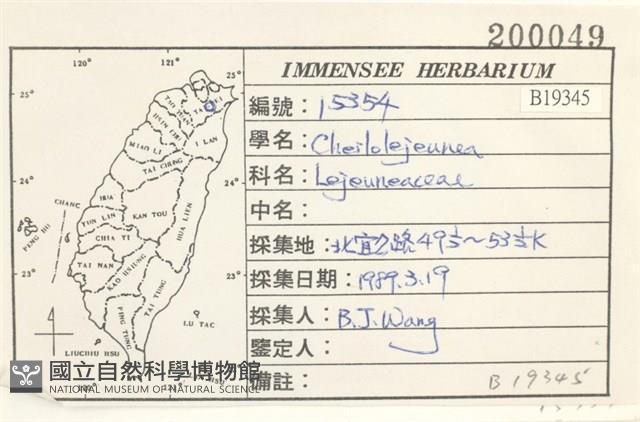 200049
IMMENSEE HERBARIUM
編號：15354
B19345
學名：Cheilolejeunea
科名：Lejeuneaceae
中名：
採集地：北宜公路49½~53½K
採集日期：1989.3.19
採集人：B.J.Wang
鑒定人：
備註：
B19345
120°
121°
25°
25°
24°
24°
23°
23°
I LAN
MIAO LI
TAI CHUNG
CHANG
HUA
YUN LIN
KAN TOU
HUA LIEN
CHIA YI
TAI NAN
KAO HSIUNG
TAI TUNG
PING TUNG
PENG HU
LU TAO
LIUCHIU HSU
國立自然科學博物館
NATIONAL MUSEUM OF NATURAL SCIENCE